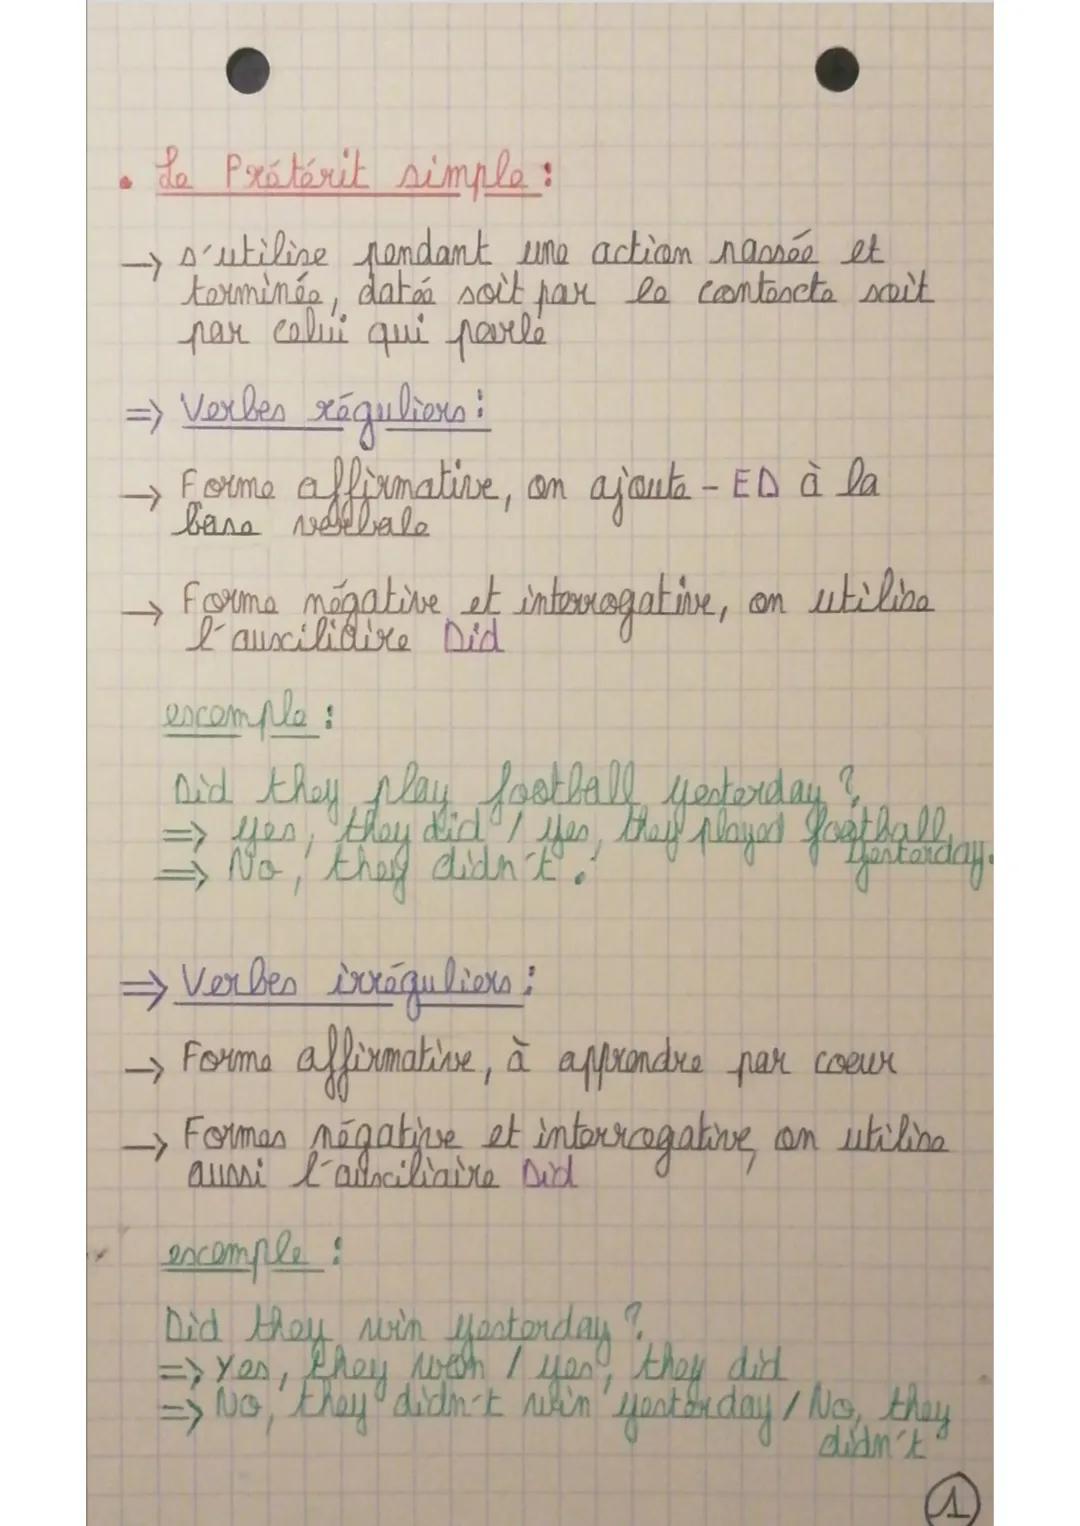 • Le Prétérit simple :
→ s'utilise pendant une action passée et
terminée, datée soit par le contexte soit
par celui qui parle
⇒ Verbes réguliers :
→ Forme affirmative, on ajoute - ED à la
base verbale
→ Forme négative et interrogative, on utilise
l'auxiliaire Did
exemple :
Did they play football yesterday ?
⇒ yes, they did / yes, they played football
yesterday.
⇒ No, they didn't.
⇒ Verbes irréguliers :
→ Forme affirmative, à apprendre par coeur
→ Formes négative et interrogative, on utilise
aussi l'auxiliaire Did
exemple :
Did they win yesterday ?
⇒ Yes, they won / yes, they did
⇒ No, they didn't win yesterday / No, they
didn't
1